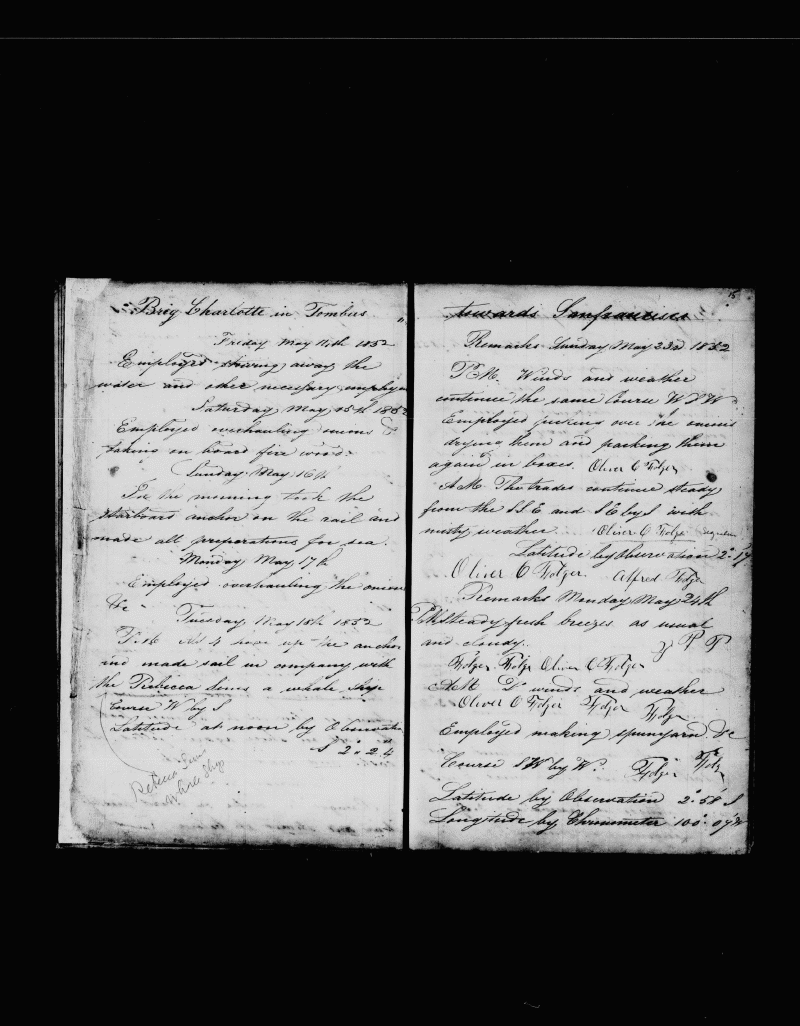 Brig Charlotte in Tombus
Friday May 14th 1852
Employed stowing away the
water and other necessary employm
Saturday May 15th 1852
Employed overhauling onions &
taking on board fire wood.
Sunday May 16th
In the morning took the
starboard anchor on the rail and
made all preparations for sea.
Monday May 17th
Employed overhauling the onions
&c
Tuesday May 18th 1852
P.M. At 4 hove up the anchor
and made sail in company with
the Rebecca Sims a whale ship
Course W by S
Latitude at noon by Observatn
S 2" 24
Rebecca Sims
Whale Ship
15
towards Sanfrancisco
Remarks Sunday May 23d 1852
P.M. Winds and weather
continue the same Course W S W
Employed picking over the onions
drying them and packing them
again in boxes. Oliver C Folger
A M The trades continue steady
from the S.S.E and S E by S with
misty weather. Oliver C Folger
Latitude by Observation 2° 17
Oliver C Folger Alfred Folger
Remarks Monday May 24th
P.M Steady fresh breezes as usual
and cloudy. P P
Folger Folger Oliver C Folger
A M Do winds and weather
Oliver C Folger Folger Folger
Employed making spunyarn &c
Course S W by W. Folger Folg
Latitude by Observation 2° 58' S
Longitude by Chronometer 100° 07 W